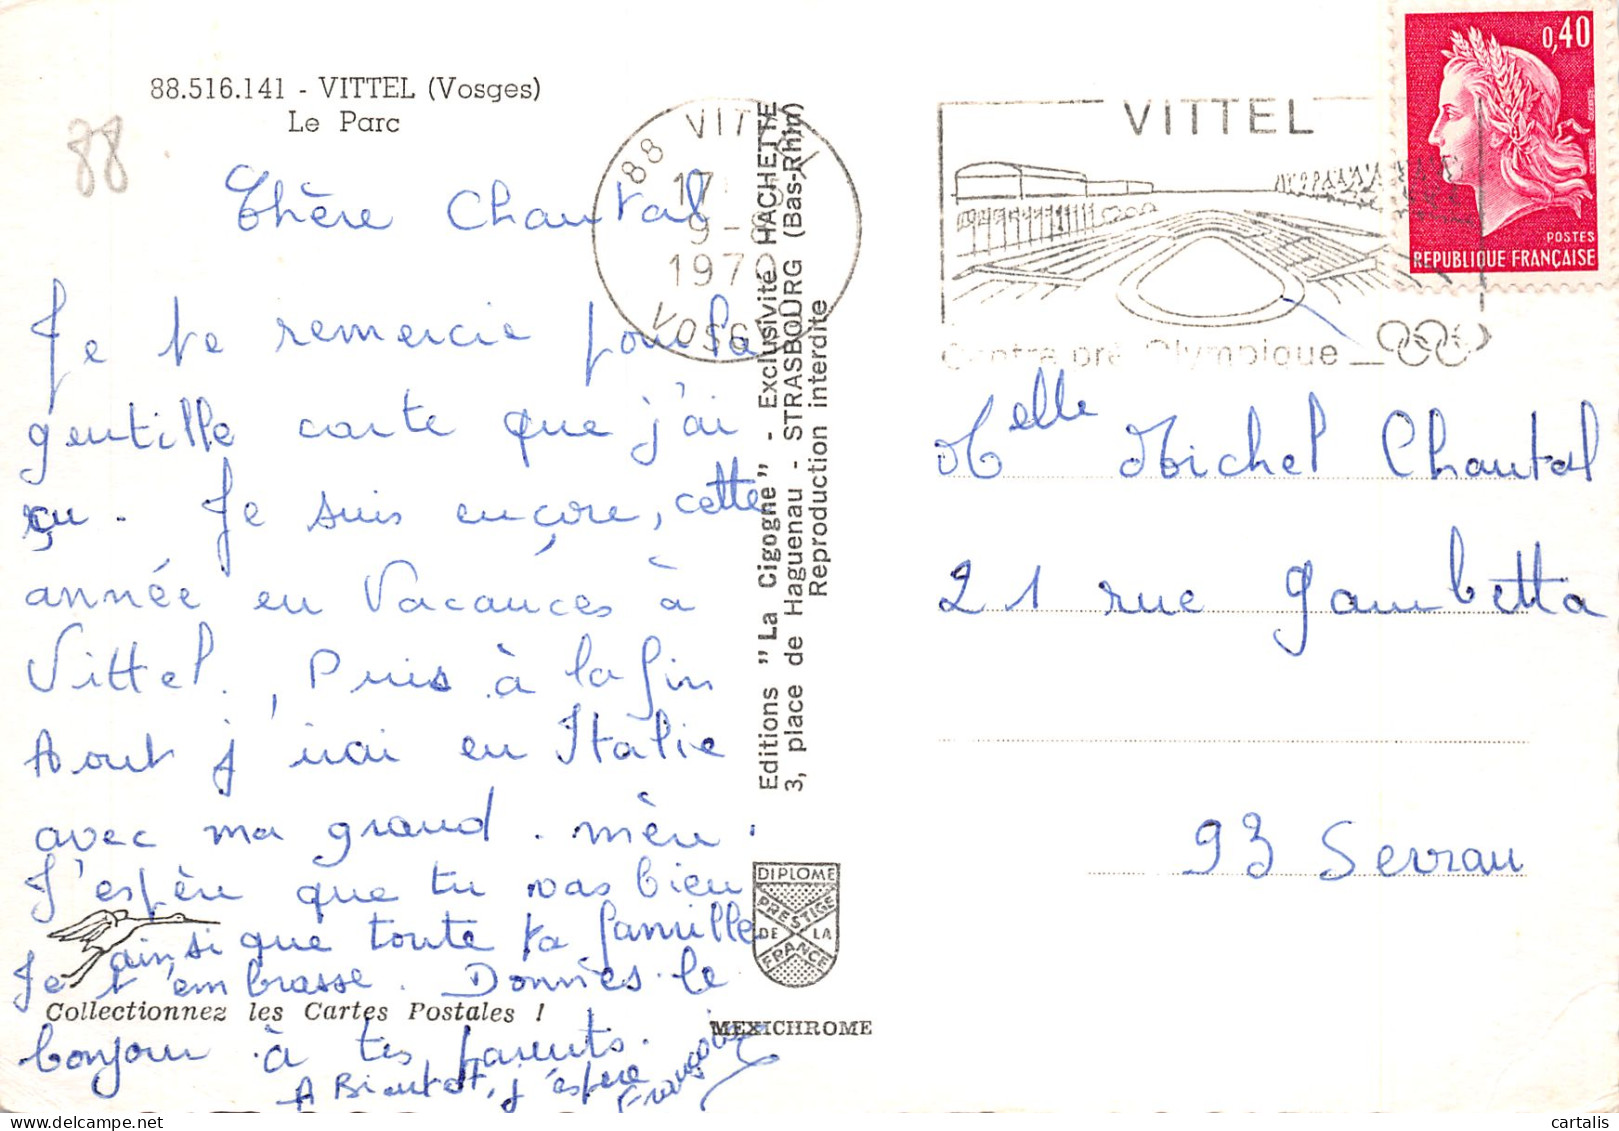 88.516.141 - VITTEL (Vosges)
Le Parc
88
Chère Chantal
Je te remercie pour la
gentille carte que j'ai
çu. Je suis encore, cette
année en Vacances à
Vittel., Puis à la fin
Aout j'irai en Italie
avec ma grand. mère.
J'espère que tu vas bien
ainsi que toute ta famille
Je t'embrasse. Donnes le
bonjour à tes parents.
A Bientot, j'espère
Collectionnez les Cartes Postales !
Editions "La Cigogne" - Exclusivité HACHETTE
3, place de Haguenau - STRASBOURG (Bas-Rhin)
Reproduction interdite
DIPLOME
PRESTIGE
DE LA
FRANCE
MEXICHROME
88 VITTEL
17
9-8
1970
VOSGES
VITTEL
Centre pré Olympique
0,40
POSTES
REPUBLIQUE FRANÇAISE
Melle Michel Chantal
21 rue Gambetta
93 Sevran
cartalis